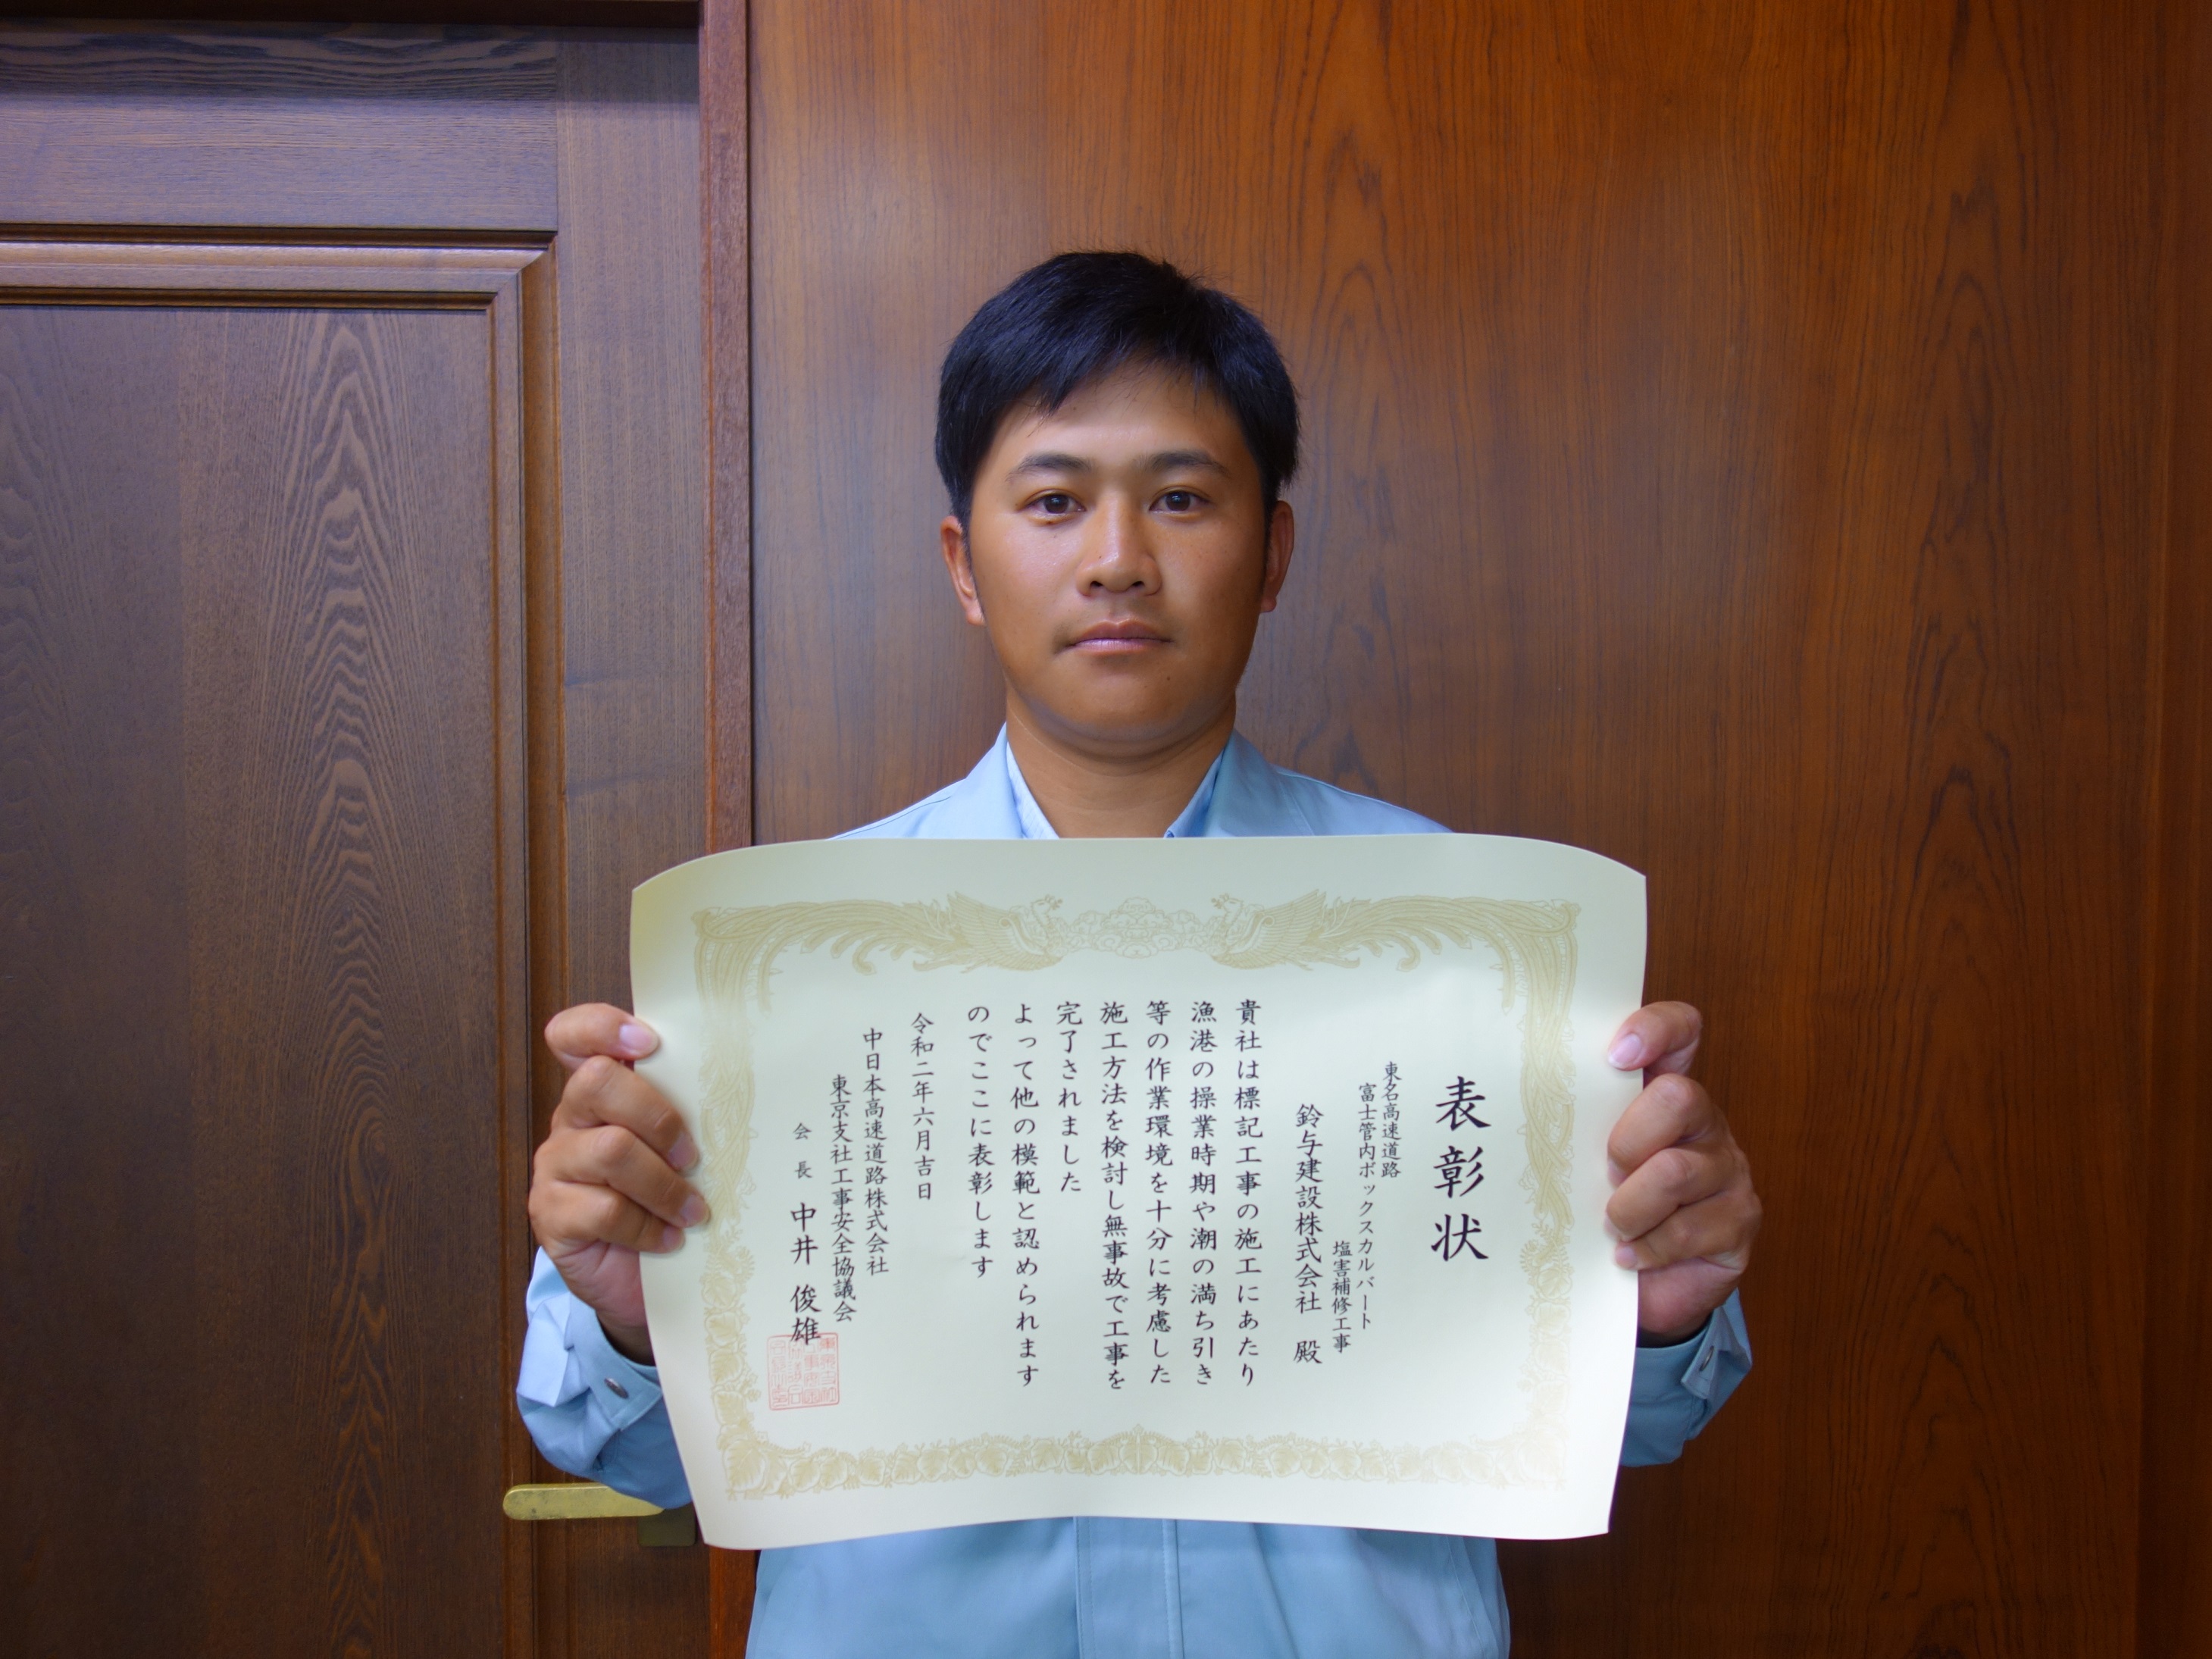 表彰状
東名高速道路
富士管内ボックスカルバート
塩害補修工事
鈴与建設株式会社 殿
貴社は標記工事の施工にあたり
漁港の操業時期や潮の満ち引き
等の作業環境を十分に考慮した
施工方法を検討し無事故で工事を
完了されました
よって他の模範と認められます
のでここに表彰します
令和二年六月吉日
中日本高速道路株式会社
東京支社工事安全協議会
会長 中井 俊雄